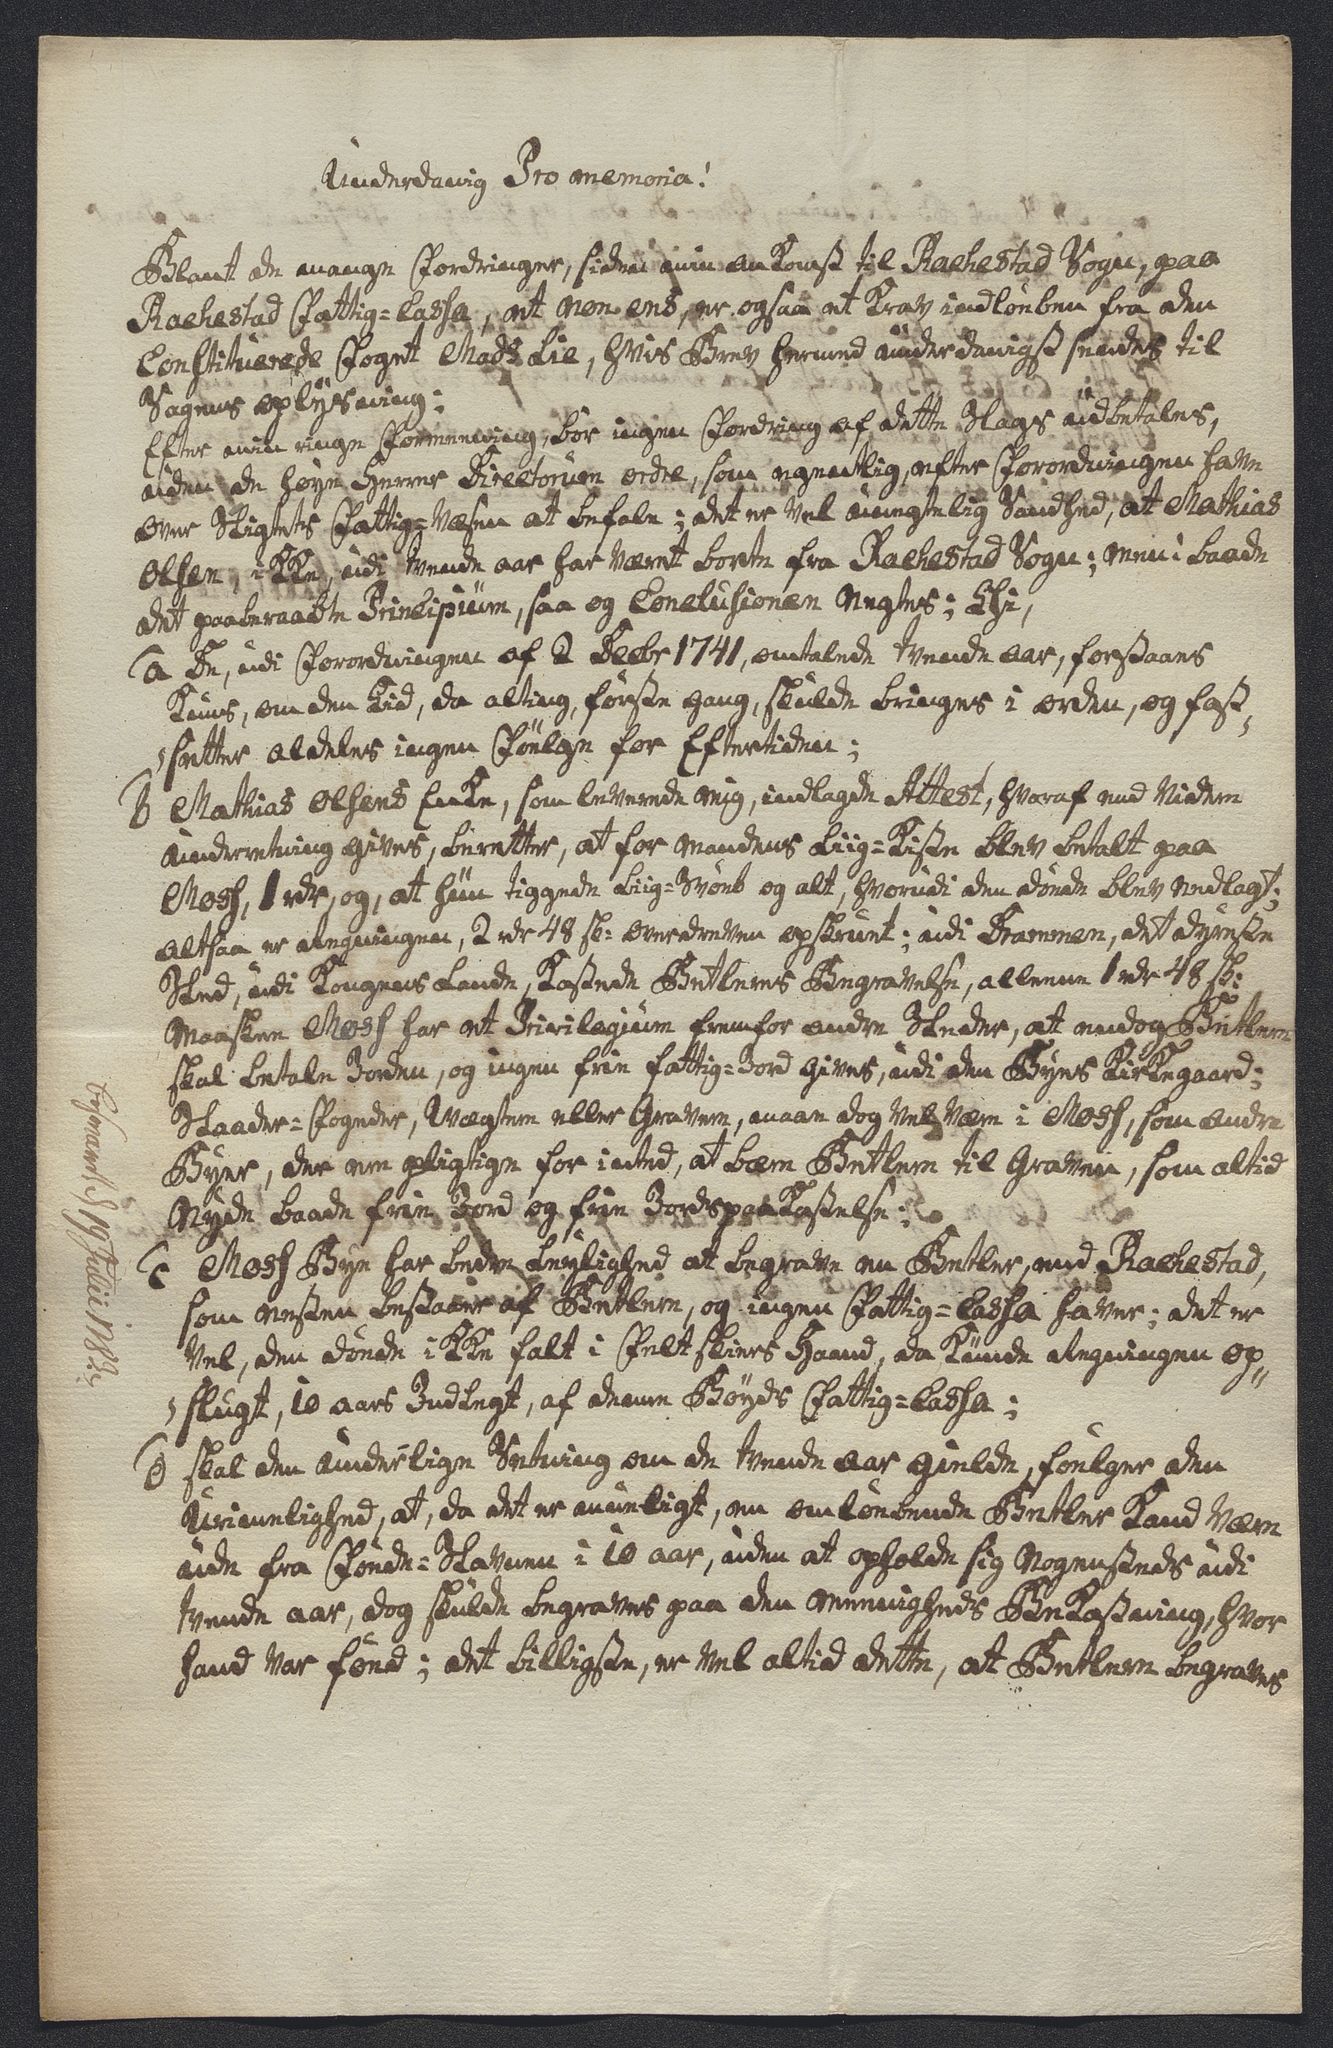 Underdanig Pro memoria!
Blant de mange Fordringer, siden min ankomst til Rachestad Sogn, paa
Rachestad Fattig=Cassa, et Non ens, er ogsaa et Krav indløuben fra den
Constituerede Foget Mads Lie, hvis Brev hermed underdanigst sendes til
Sagens oplysning:
Efter min ringe Formeening, bør ingen Fordring af dette Slags udbetales,
uden de høye Herrer Directorum ordre, som egentlig, efter Forordningen have
over Stigtets Fattig=Væsen at befale; det er vel unegtelig Sandhed, at Mathias
Olsen, ikke, udi tvende aar har været borte fra Rachestad Sogn; men baade
det paaberaabte Principium, saa og Conclusionen Negtes; Thi,
a De, udi Forordningen af 2 Decbr 1741, omtalede tvende aar, forstaaes
Kuns, om den Tid, da alting, første gang, skulde bringes i orden, og fast,,
,,sætter aldeles ingen Følge for Eftertiden;
b Mathias Olsens Enke, som leverede mig, indlagde Attest, hvoraf med Videre
underretning gives, beretter, at for mandens Liig=Kiste blev betalt paa
Moss, 1 rdr, og, at hun tiggede Liig=Svøb og alt, hvorudi den døde blev nedlagt;
altsaa er Regningen, 2 rdr 48 sk: overdreven opskruet; udi Drammen, det dyreste
Sted, udi Kongens Lande, Kostede Betleres Begravelse, allene 1 rdr 48 sk:
Maaskee Moss har et Privilegium fremfor andre Steder, at endog Betlere
skal betale Jorden, og ingen frie fattig=Jord gives, udi den Byes Kirkegaard;
Staader=Fogeder, Vægtere eller Gravere, maae dog vel være i Moss, som andre
Byer, der ere pligtige for intet, at bære Betlere til Graven, som altid
Nyde baade frie Jord og frie Jordspaakastelse;
c Moss Bye har bedre Leylighed at begrave en Betler, end Rachestad,
som næsten bestaaer af Betlere, og ingen Fattig=Cassa haver; det er
vel, den døde ikke falt i Feltskiers Haand, da Kunde Regningen op,,
,,slugt, 10 aars Indtegt, af denne Bøyds Fattig=Cassa;
d skal den underlige Sætning om de tvende aar gielde, følger den
Urimelighed, at, da det er mueligt, en omløbende Betler Kand være
ude fra Føde=Stavnen i 10 aar, uden at opholde sig Nogensteds udi
tvende aar, dog skulde begraves paa den Menigheds Bekostning, hvor
hand var fød; det billigste, er vel altid dette, at Betlere begraves
Besvaret d 19 Julii 1783